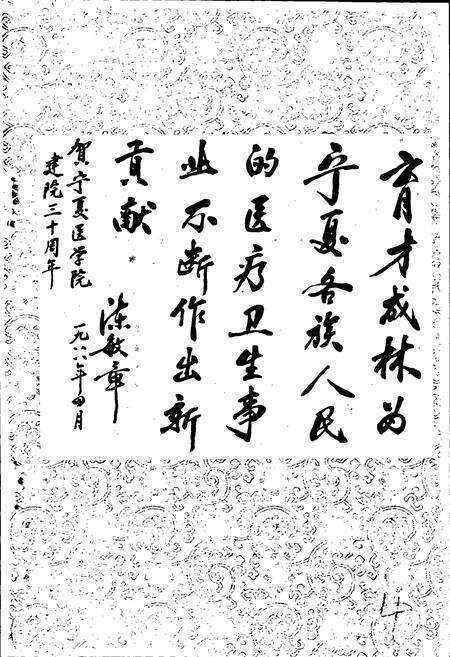 育才成林为
宁夏各族人民
的医疗卫生事
业不断作出新
贡献
贺宁夏医学院
建院三十周年
陈敏章
一九八八年四月
4